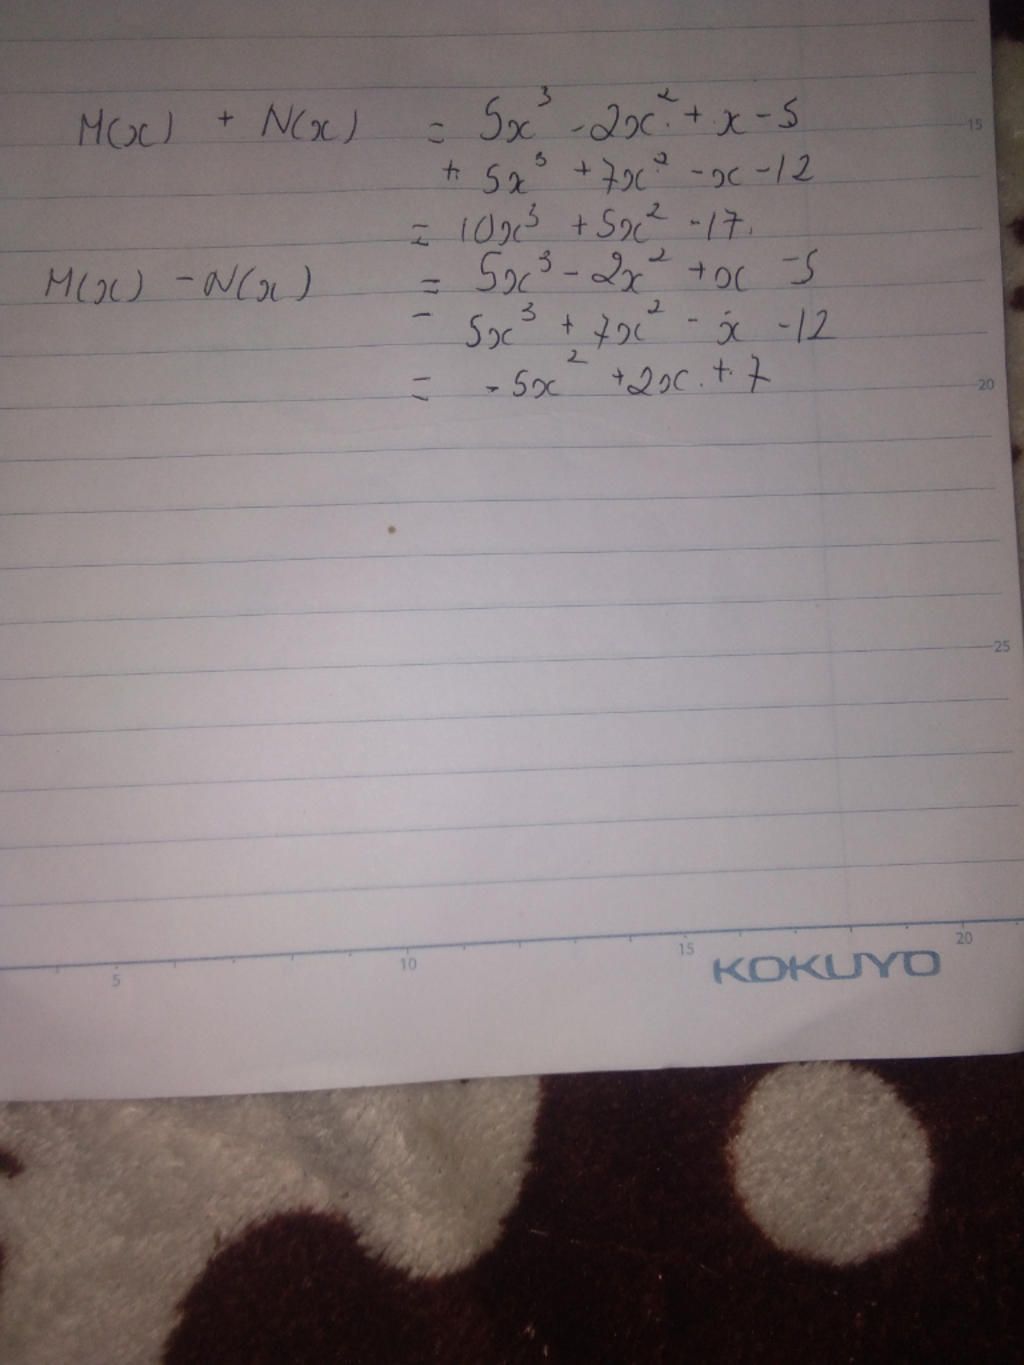 M(x) + N(x) = 5x³ - 2x² + x - 5
+ 5x³ + 7x² - x - 12
= 10x³ + 5x² - 17.
M(x) - N(x) = 5x³ - 2x² + x - 5
- 5x³ + 7x² - x - 12
= - 5x² + 2x + 7
15
20
25
5 10 15 20
KOKUYO